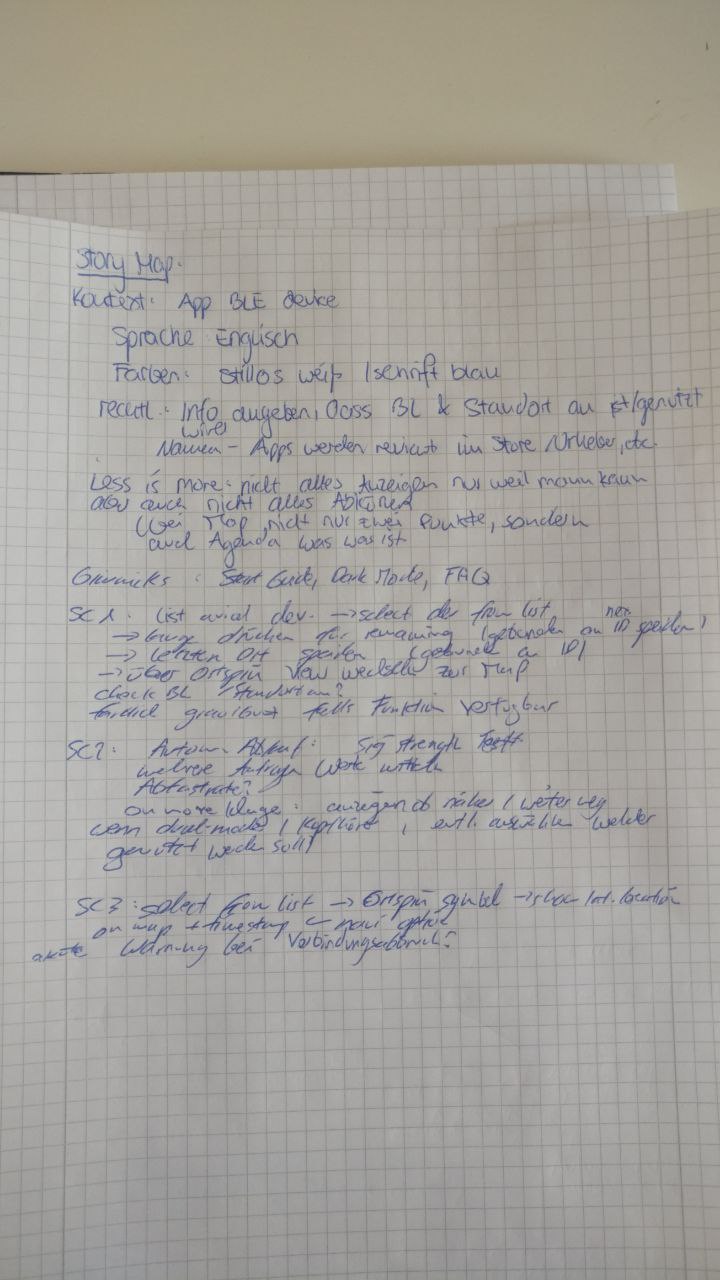 Story Map.
Kontext: App BLE device
Sprache: Englisch
Farben: stillos weiß / schrift blau
rechtl.: Info angeben, dass BL & Standort an ist/genutzt
wird
Namen - Apps werden reviewt im Store Urheber, etc.
Less is more: nicht alles anzeigen nur weil mann kann
aber auch nicht alles Abkürzen
(bei Map nicht nur zwei Punkte, sondern
auch Agenda was was ist
Gimmicks: Start Guide, Dark Mode, FAQ
SC1: list avial dev. → select dev from list
→ lange drücken für renaming (gebunden an ID speichern)
→ letzten Ort speichern (gebunden an ID)
→ über Ortspin View wechseln zur Map
check BL / Standort an?
farblich grau/bunt falls Funktion verfügbar
SC2: Autom. Ablauf: Sig strength Test
mehrere Anfragen Werte mitteln
Abtastrate?
on more Klicks: anzeigen ob näher / weiter weg
wenn dual-mode / Kopfhörer, evtl. auswählen welcher
genutzt werden soll)
SC3: select from list → Ortspin symbol → show lst. location
on map + timestamp ← navi option
Warnung bei Verbindungsabbruch?